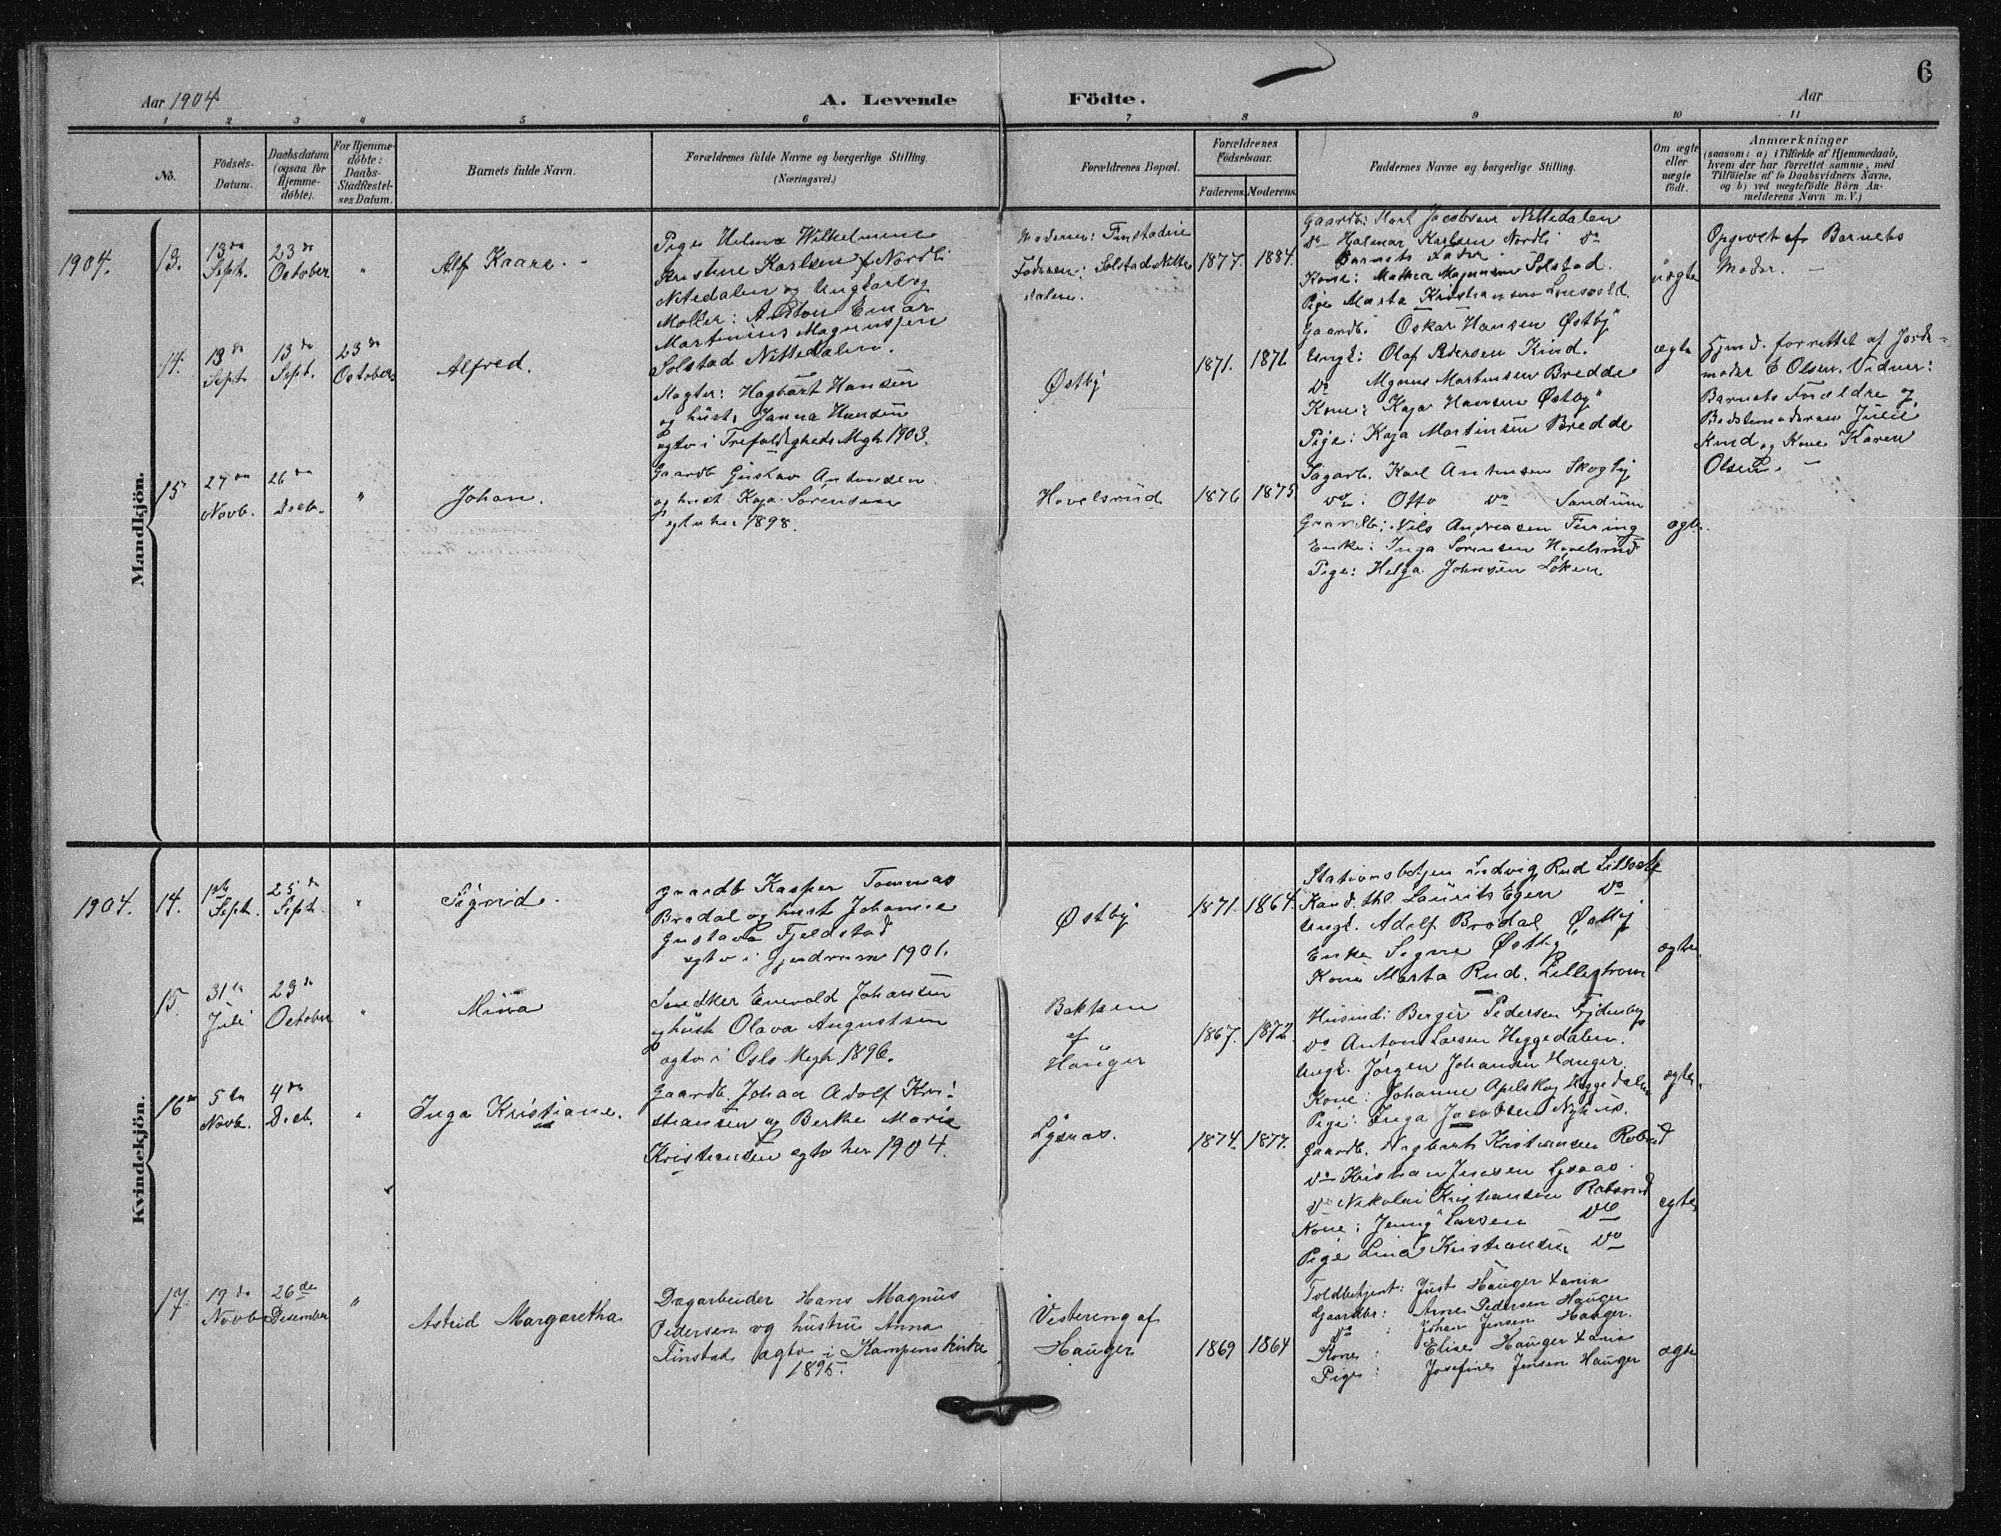 6
Aar 1904
A. Levende
Födte.
Aar
1 2 3 4 5 6 7 8 9 10 11
No.
Födsels-
Datum.
Daabsdatum
(ogsaa for
Hjemme-
døbte).
For Hjemme-
døbte:
Daabs-
Stadfæstel-
ses Datum.
Barnets fulde Navn.
Forældrenes fulde Navne og borgerlige Stilling.
(Næringsvei.)
Forældrenes Bopæl.
Forældrenes
Födselsaar.
Faderens. Moderens.
Faddernes Navne og borgerlige Stilling.
Om ægte
eller
uægte
födt.
Anmærkninger
(saasom: a) i Tilfælde af Hjemmedaab,
hvem der har forrettet samme, med
Tilföielse af to Daabsvidners Navne,
og b) ved uægtefödte Börn An-
melderens Navn m. V.)
Mandkjön.
1904.
13.
13de
Sept.
23de
October
"
Alf Kaare.
Pige Helma Wilhelmine
Kristine Karlsen f Nordli
Nitedalen og Ungkarl og
Møller: Anton Einar
Martinius Magnussen
Solstad Nittedalen.
Moderen: Finstadeie
Faderen: Solstad Nitte
dalen.
1877. 1884.
Gaardb: Karl Jacobsen Nittedalen
do Halmar Karlsen Nordli do
Barnets Fader.
Kone: Mathea Magnussen Solstad.
Pige Marta Kristiansen
uægte
Opgivet af Barnets
Moder. —
14.
13de
Sept.
13de
Sept.
23de
October.
Alfred.
Slagter: Hagbart Hansen
og hust. Janna Hansen
egtv i Trefoldigheds Mgh 1903.
Østby
1871. 1871
Gaardb. Oskar Hansen Østby
Ungk: Olaf Pedersen Kind.
do Magnus Martinsen Bredde
Kone: Kaja Hansen Østby
Pige: Kaja Martinsen Bredde
ægte
Hjmd. forrettet af Jorde-
moder E Olsen. Vidner:
Barnets Forældre og
Bedstemoderen Julie
Kind og Kone Karen
Olsen. —
15
27de
Novb.
26de
Decb.
"
Johan.
Gaardb. Gustav Antonsen
og hust Kaja Sørensen
egtv her 1898.
Hovelsrud
1876 1875.
Sagarb. Karl Antonsen Skogby
do: Otto do Sandum
Gaardb: Nils Andreasen Tering
Enke: Inga Sørensen Hovelsrud
Pige: Helga Johnsen Løken
ægte.
Kvindekjön.
1904.
14.
1ste
Sept.
25de
Sept.
"
Sigrid.
Gaardb Kasper Tommas
Brodal og hust Johanne
Gustava Fjeldstad
egtv i Gjerdrum 1901.
Østby
1871. 1864.
Stationsbetjen Ludvig Rud Lillestr
Kand. thl Laurits Egen do
Ungk. Adolf Brodal Østby
Enke Signe Østby
Kone Marta Rud. Lillestrøm
ægte.
15.
31te
Juli
23de
October
"
Mina
Snedker Enevold Johansen
og hust Olava Augustsen
egtv i Oslo Mgh 1896.
Bakken
af
Hauger
1867. 1872.
Husmd: Berger Pedersen
do Anton Larsen Heggedalen.
Ungk. Jørgen Johansen Hauger
Kone: Johanne Apelskog Heggedalen
Pige: Inga Jacobsen Nyhus.
ægte.
16
5te
Novb.
4de
Decb.
"
Inga Kristiane.
Gaardb. Johan Adolf Kri-
stiansen og Berthe Marie
Kristiansen egtv her 1904.
Lysaas.
1874. 1877.
Gaardb. Hagbart Kristiansen Robsrud
do Kristian Jensen Lysaas.
do Nikolai Kristiansen Robsrud
Kone: Jenny Larsen do
Pige Lina Kristiansen do
egte
17
19de
Novb
26de
Desember
"
Astrid Margaretha
Dagarbeider Hans Magnus
Pedersen og hustru Anna
Finstad ægtv i Kampens kirke
1895.
Vestereng af
Hauger
1869 1864
Toldbetjent: Just Hauger Xania
Gaardbr: Arne Pedersen Hauger
do : Johan Jensen Hauger.
Kone : Elise Hauger Xania
Pige : Josefine Jensen Hauger
ægte